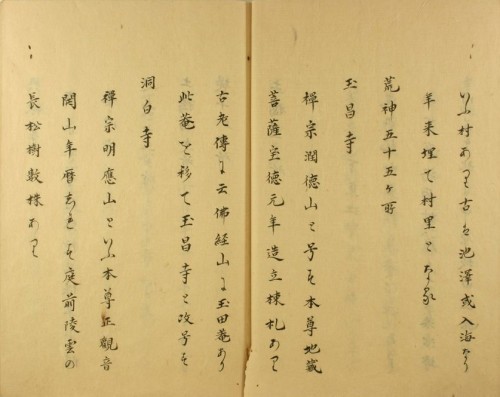 いふ村あり古は池澤或入海なり
年来埋て村里となる
荒神五十五ヶ所
玉昌寺
禅宗潤徳山と号す本尊地蔵
菩薩宝徳元年造立棟札あり
古老傳に云佛経山に玉田菴あり
此菴を移て玉昌寺と改号す
洞白寺
禅宗明應山といふ本尊正觀音
開山年暦しれす庭前陵雲の
長松樹数株あり